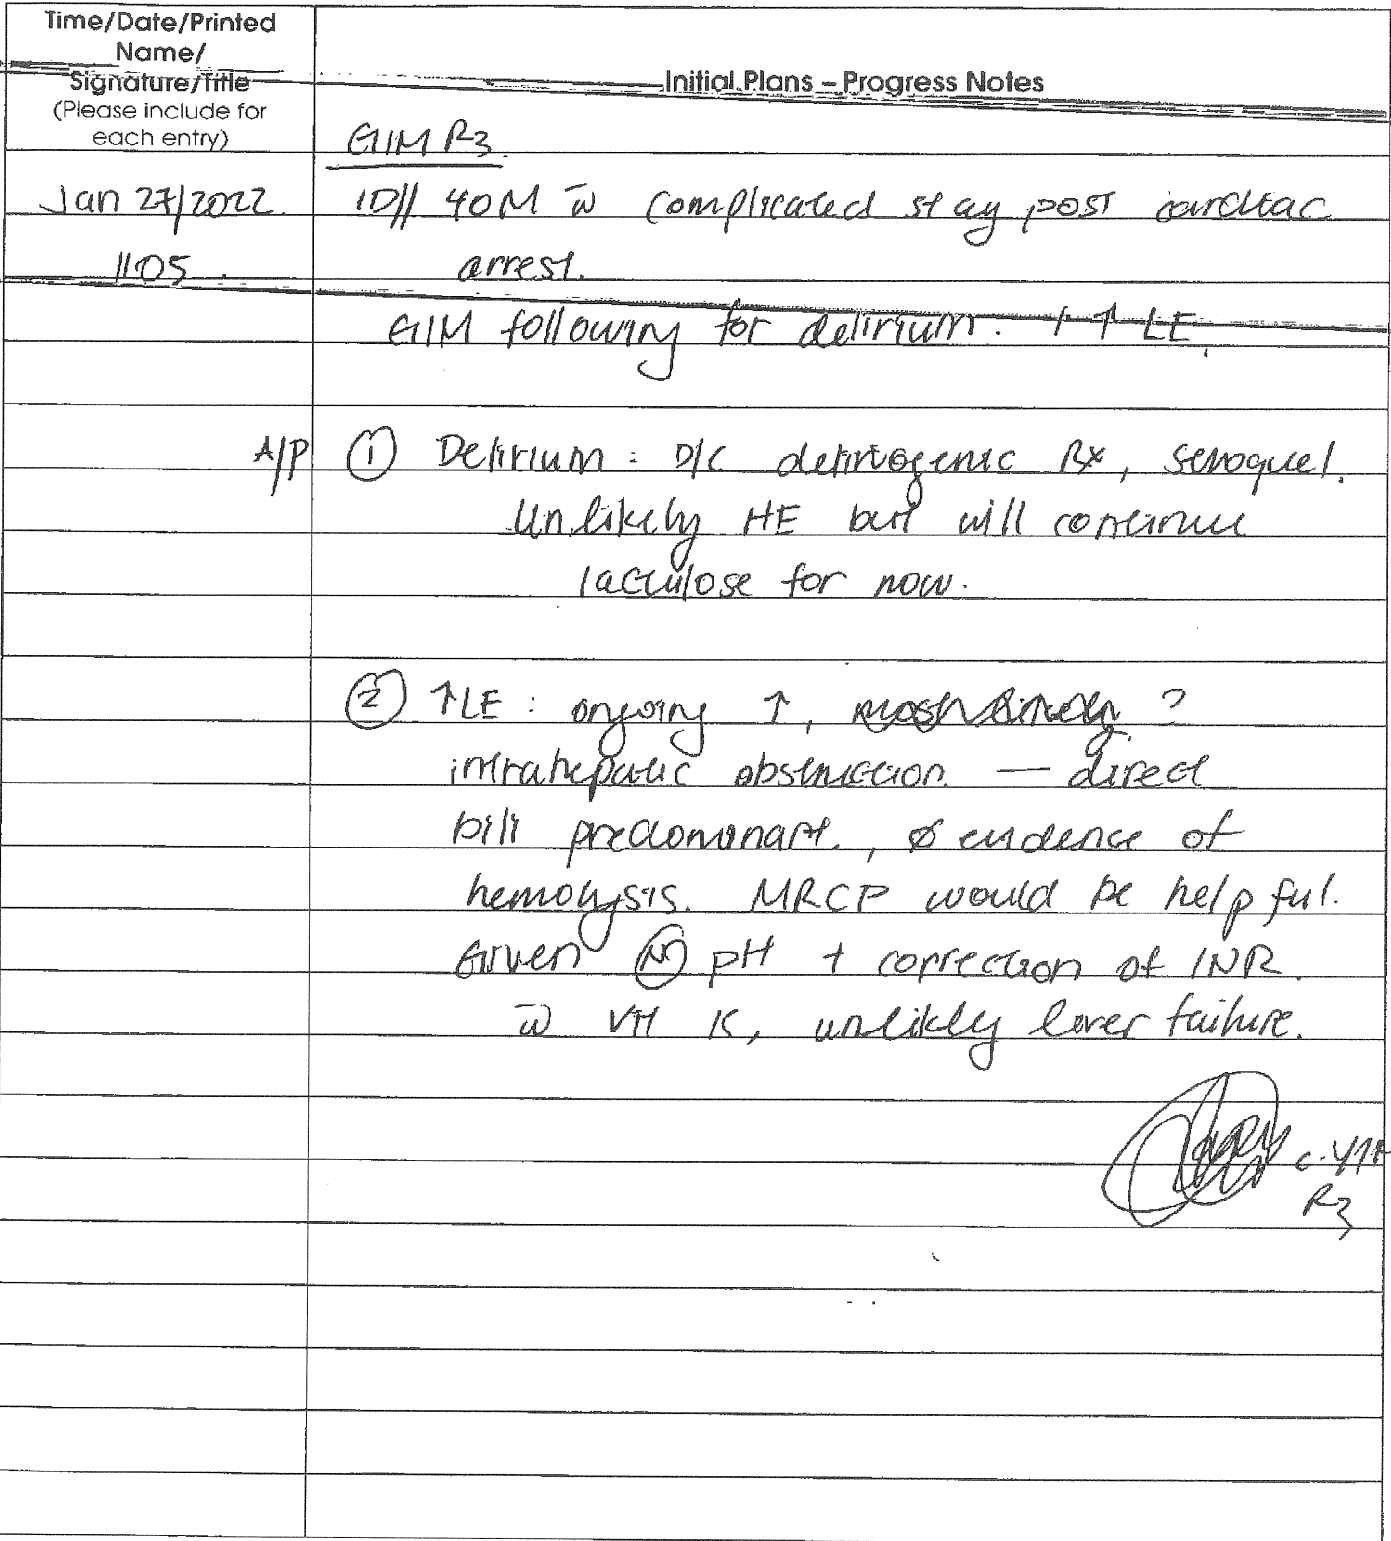 Time/Date/Printed
Name/
Signature/Title
(Please include for
each entry)
Initial Plans – Progress Notes
GIM R3
Jan 27/2022 ID// 40M w̄ complicated stay post cardiac
1105. arrest.
GIM following for delirium. + ↑ LE.
A/P ① Delirium: D/C deliriogenic Rx, seroquel.
Unlikely HE but will continue
lactulose for now.
② ↑LE: ongoing ↑, ?
intrahepatic obstruction — direct
bili predominant, ∅ evidence of
hemolysis. MRCP would be helpful.
Given Ⓝ pH + correction of INR
w̄ vit K, unlikely liver failure.
R3